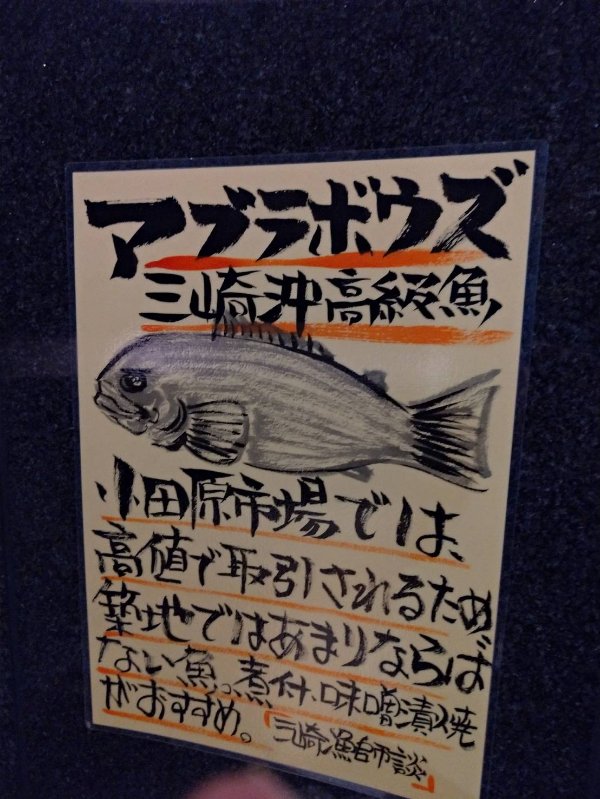 アブラボウズ
三崎沖高級魚
小田原市場では、
高値で取引されるため
築地ではあまりならば
ない魚。煮付.味噌漬焼
がおすすめ。「三崎漁師談」